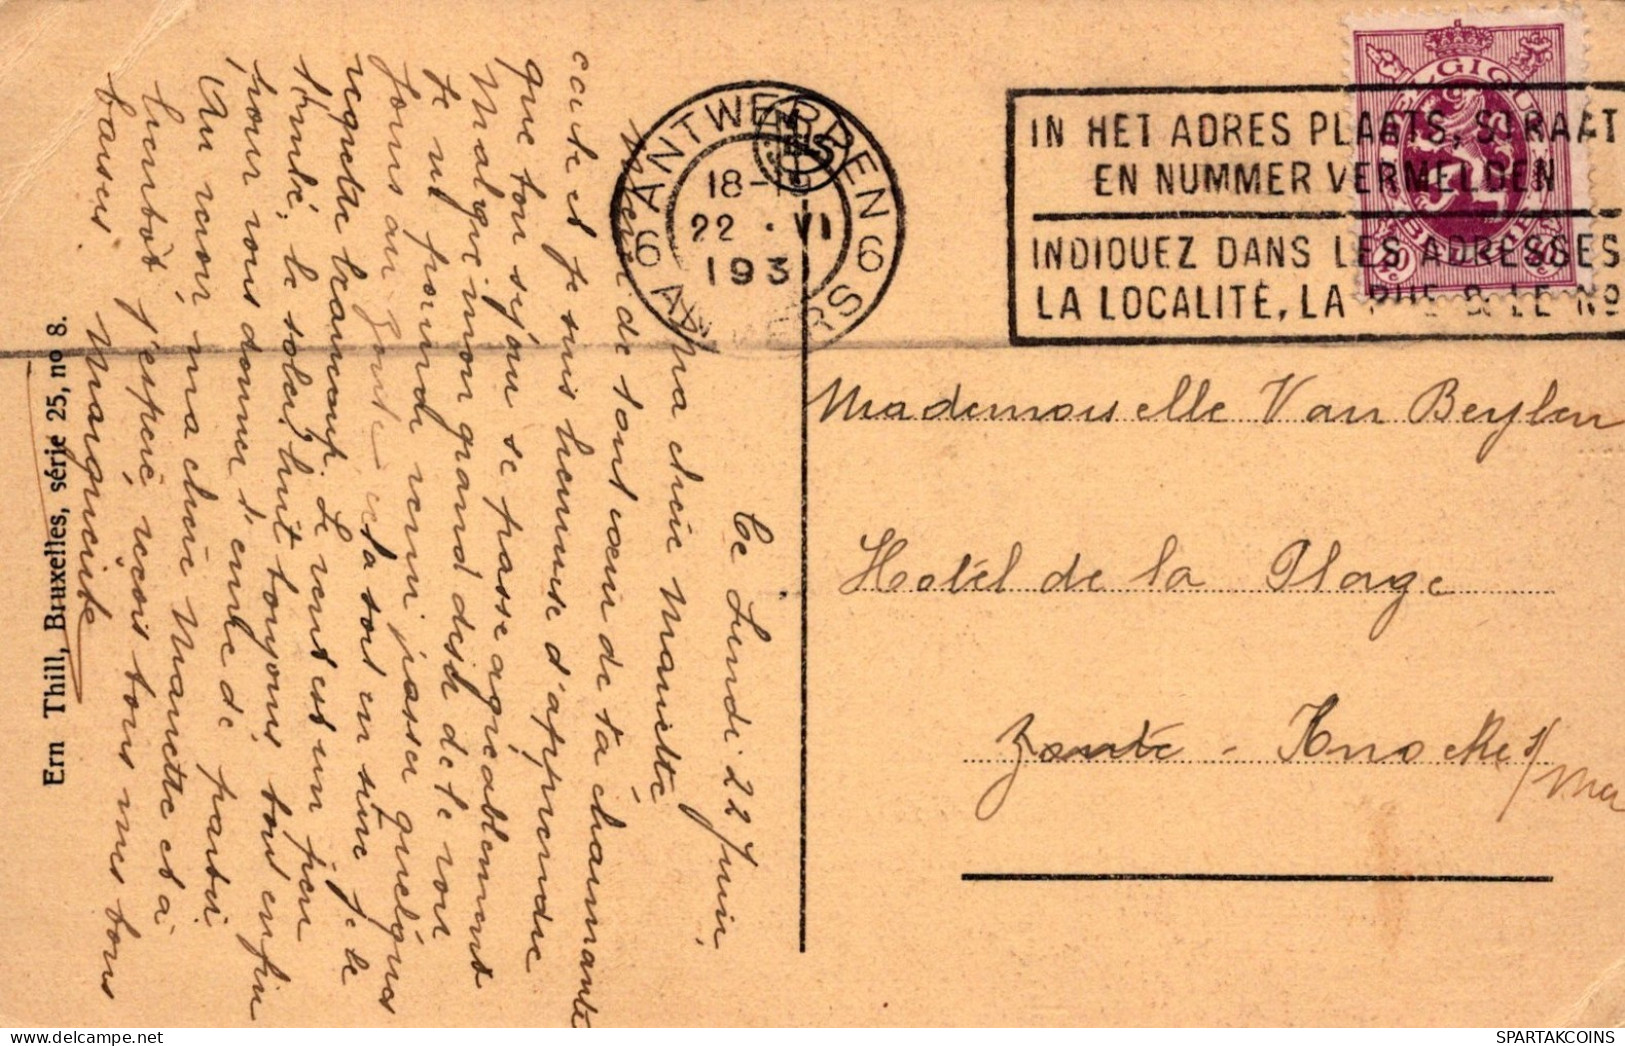 Ce Lundi 22 Juin,
Ma chère Manette
Merci de tout cœur de ta charmante
carte et je suis heureuse d'apprendre
que ton séjour se passe agréablement
Malgré mon grand désir de te voir
je ne pourrai venir passer quelques
jours au Zoute cela sois en sûre je le
regrette beaucoup. Le vent est un peu
tombé, le soleil luit toujours, tout enfin
pour vous donner l'envie de partir
Au revoir, ma chère Manette et à
bientôt j'espère, reçois tous mes bons
baisers Marguerite
Ern Thill, Bruxelles, série 25, no 8.
6 ANTWERPEN 6
18-19
22 · VI
193
ANVERS
IN HET ADRES PLAATS, STRAAT
EN NUMMER VERMELDEN
INDIQUEZ DANS LES ADRESSES
LA LOCALITÉ, LA RUE & LE No
BELGIQUE
BELGIË
40c 40c
Mademoiselle Van Beylen
Hotel de la Plage
Zoute - Knocke s/
Mer
SPARTAKCOINS